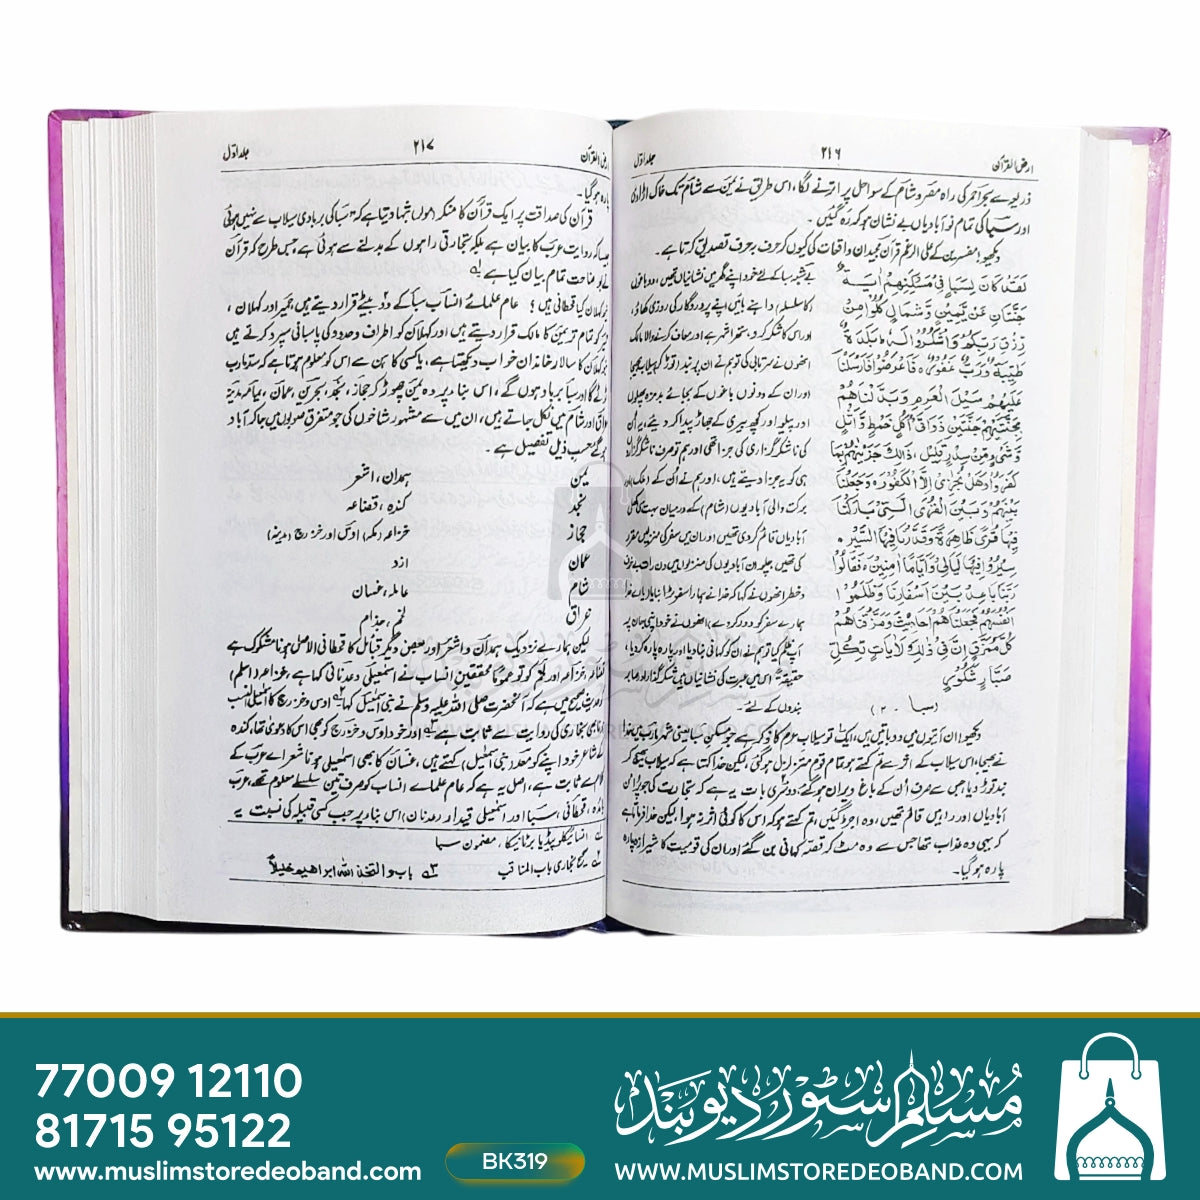 ارض القرآن ۲۱۶ جلد اول
ذریعہ سے بحر احمر کی راہ مصر و شام کے سواحل پر اترنے لگا، اس طریق نے یمن سے شام تک خاک اڑا دی
اور سبا کی تمام نو آبادیاں بے نشان ہو کر رہ گئیں۔
دیکھو! مفسرین کے علی الرغم قرآن مجید ان واقعات کی کیوں کر حرف بحرف تصدیق کرتا ہے۔
لَقَدْ كَانَ لِسَبَإٍ فِي مَسْكَنِهِمْ اٰيَةٌ
جَنَّتَانِ عَنْ يَّمِيْنٍ وَّشِمَالٍ كُلُوْا مِنْ
رِّزْقِ رَبِّكُمْ وَاشْكُرُوْا لَهٗ بَلْدَةٌ
طَيِّبَةٌ وَّرَبٌّ غَفُوْرٌ فَاَعْرَضُوْا فَاَرْسَلْنَا
عَلَيْهِمْ سَيْلَ الْعَرِمِ وَبَدَّلْنَاهُمْ
بِجَنَّتَيْهِمْ جَنَّتَيْنِ ذَوَاتَيْ اُكُلٍ خَمْطٍ وَّاَثْلٍ
وَّشَيْءٍ مِّنْ سِدْرٍ قَلِيْلٍ، ذٰلِكَ جَزَيْنٰهُمْ بِمَا
كَفَرُوْا وَهَلْ نُجٰزِيْ اِلَّا الْكَفُوْرَ وَجَعَلْنَا
بَيْنَهُمْ وَبَيْنَ الْقُرَى الَّتِيْ بَارَكْنَا
فِيْهَا قُرًى ظَاهِرَةً وَّقَدَّرْنَا فِيْهَا السَّيْرَ
سِيْرُوْا فِيْهَا لَيَالِيَ وَاَيَّامًا اٰمِنِيْنَ فَقَالُوْا
رَبَّنَا بَاعِدْ بَيْنَ اَسْفَارِنَا وَظَلَمُوْا
اَنْفُسَهُمْ فَجَعَلْنَاهُمْ اَحَادِيْثَ وَمَزَّقْنَاهُمْ
كُلَّ مُمَزَّقٍ اِنَّ فِيْ ذٰلِكَ لَاٰيَاتٍ لِّكُلِّ
صَبَّارٍ شَكُوْرٍ
(سبا - ۲)
بے شبہ سبا کے لئے خود اپنے گھر میں نشانیاں تھیں، دو باغوں
کا سلسلہ داہنے بائیں اپنے پروردگار کی روزی کھاؤ،
اور اس کا شکر کرو، ستھرا شہر ہے اور معاف کرنے والا مالک
انھوں نے سرتابی کی تو ہم نے ان پر بند توڑ کر سیلاب بھیجا
اور ان کے دونوں باغوں کے بجائے بدمزہ پھلوں
اور پیلو اور کچھ بیری کے جھاڑ پیدا کر دیئے، یہ ان
کی ناشکر گزاری کی جزا تھی اور ہم تو صرف ناشکرگزاروں
ہی کو یہ جزا دیتے ہیں، اور ہم نے اُن کے (ملک) اور
برکت والی آبادیوں (شام) کے درمیان بہت سی کھلی
آبادیاں قائم کر دی تھیں اور ان میں سفر کی منزلیں مقرر
کی تھیں چلو ان آبادیوں کی منزلوں میں دن رات بے خوف
و خطر انھوں نے کہا کہ خدا نے ہمارا سفر
ہمارے سفر کو دور کر دے) انھوں نے خود اپنی جان پر
آپ ظلم کیا تو ہم نے ان کو کہانی بنا دیا اور پارہ پارہ کر دیا،
حقیقۃً اس میں عبرت کی نشانیاں ہیں شکرگزار اور صابر
بندوں کے لئے۔
دیکھو! ان آیتوں میں دو باتیں ہیں، ایک تو سیلاب عرم کا ذکر ہے جو مسکن سبا یعنی شہر مارب میں خدا
نے بھیجا، اس سیلاب کے اثر سے تم کہتے ہو تمام قوم متزلزل ہو گئی، لیکن خدا کہتا ہے کہ سیلاب بھیج کر
بند توڑ دیا جس سے صرف اُن کے باغ ویران ہو گئے، دوسری بات یہ ہے کہ تجارت کی جو پُر ان
آبادیاں اور راہیں قائم تھیں، وہ اجڑ گئیں، تم کہتے ہو کہ اس کا کوئی اثر نہ ہوا، لیکن خدا فرماتا ہے
کہ یہی وہ عذاب تھا جس سے وہ مٹ کر قصہ کہانی بن گئے اور ان کی قومیت کا شیرازہ پارہ
پارہ ہو گیا۔
ارض القرآن ۲۱۷ جلد اول
پارہ ہو گیا۔
قرآن کی صداقت پر ایک قرآن کا منکر یوں شہادت دیتا ہے کہ "سبا کی بربادی سیلاب سے نہیں ہوئی
جیسا کہ روایت عرب کا بیان ہے بلکہ تجارتی راہوں کے بدلنے سے ہوئی ہے جس طرح کہ قرآن
نے بوضاحت تمام بیان کیا ہے
کہلان کیا قحطانی ہیں؟ عام علمائے انساب سبا کے دو بیٹے قرار دیتے ہیں، حمیر اور کہلان،
حمیر کو تمام تر یمن کا مالک قرار دیتے ہیں اور کہلان کو اطراف و حدود کی پاسبانی سپرد کرتے ہیں
کہلان کا سالار خاندان خواب دیکھتا ہے، یا کسی کاہن سے اس کو معلوم ہوتا ہے کہ سد مارب
ٹوٹے گا اور سبا برباد ہوں گے، اس بنا پر وہ یمن چھوڑ کر حجاز، نجد، بحرین، عمان، یمامہ، مدینہ
عراق اور شام میں نکل جاتے ہیں، ان میں سے مشہور شاخوں کی جو متفرق صوبوں میں جا کر آباد
ہو گئے حسب ذیل تفصیل ہے۔
یمن ہمدان، اشعر
نجد کندہ، قضاعہ
حجاز خزاعہ (مکہ) اوس اور خزرج (مدینہ)
عمان ازد
شام عاملہ، غسان
عراق لخم، جذام
لیکن ہمارے نزدیک ہمدان و اشعر اور بعض دیگر قبائل کا قحطانی الاصل ہونا مشکوک ہے
قضاعہ، خزاعہ اور لخم کو تو عموماً محققین انساب نے اسمعیلی و عدنانی کہا ہے، خزاعہ (اسلم)
حدیث صحیح میں ہے کہ آنحضرت صلی اللہ علیہ وسلم نے بنی اسمٰعیل کہا، اوس و خزرج کا اسمٰعیلی النسب
ہونا بخاری کی روایت سے ثابت ہے، اور خود اوس و خزرج کو بھی اس کا دعویٰ تھا، کندہ
کے شاعر خود اپنے کو معد (بنی اسمٰعیل) کہتے ہیں، غسان کا بھی اسمٰعیلی ہونا شعرائے عرب کے
کلام سے ثابت ہے، اصل یہ ہے کہ عام علمائے انساب کو صرف تین سلسلے معلوم تھے، عرب
بائدہ، قحطانی (سبا) اور اسمٰعیلی قیدار (عدنان) اس بنا پر جب کسی قبیلہ کی نسبت یہ
لہ انسائیکلوپیڈیا برٹانیکا، مضمون سبا
۲ہ صحیح بخاری باب المناقب ۳ہ باب واتخذ اللہ ابراهیم خلیلاً
77009 12110
81715 95122
www.muslimstoredeoband.com
BK319
مسلم سٹور دیوبند
WWW.MUSLIMSTOREDEOBAND.COM